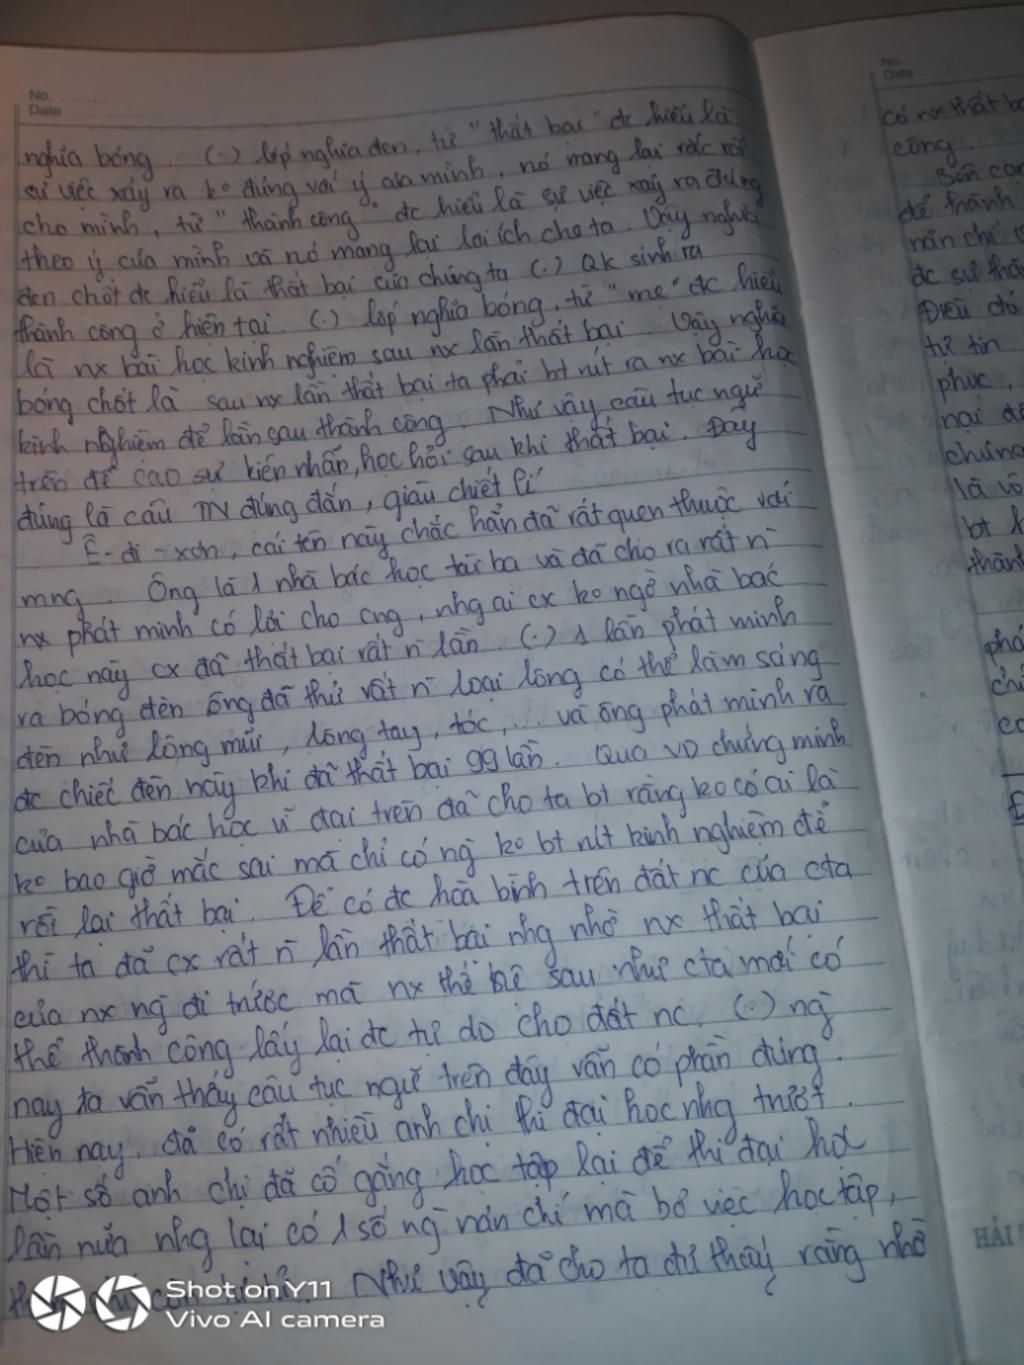 No.
Date
nghĩa bóng. (.) lớp nghĩa đen, từ "thất bại" đc hiểu là
sự việc xảy ra ko đúng với ý của mình, nó mang lại rắc rối
cho mình, từ "thành công" đc hiểu là sự việc xảy ra đúng
theo ý của mình và nó mang lại lợi ích cho ta. Vậy nghĩa
đen chốt đc hiểu là thất bại của chúng ta (.) QK sinh ra
thành công ở hiện tại. (.) lớp nghĩa bóng, từ "mẹ" đc hiểu
là nx bài học kinh nghiệm sau nx lần thất bại. Vậy nghĩa
bóng chốt là sau nx lần thất bại ta phải bt rút ra nx bài học
kinh nghiệm để lần sau thành công. Như vậy câu tục ngữ
trên đề cao sự kiên nhẫn, học hỏi sau khi thất bại. Đây
đúng là câu TN đúng đắn, giàu chiết lí
Ê-đi-xơn, cái tên này chắc hẳn đã rất quen thuộc với
mng. Ông là 1 nhà bác học tài ba và đã cho ra rất n̄
nx phát minh có lời cho cng, nhg ai cx ko ngờ nhà bác
học này cx đã thất bại rất n̄ lần. (.) 1 lần phát minh
ra bóng đèn ông đã thử rất n̄ loại lông có thể làm sáng
đèn như lông mũi, lông tay, tóc,... và ông phát minh ra
đc chiếc đèn này khi đã thất bại 99 lần. Qua VD chứng minh
của nhà bác học vĩ đại trên đã cho ta bt rằng ko có ai là
ko bao giờ mắc sai mà chỉ có ng̀ ko bt rút kinh nghiệm để
rồi lại thất bại. Để có đc hoà bình trên đất nc của cta
thì ta đã cx rất n̄ lần thất bại nhg nhờ nx thất bại
của nx ng̀ đi trước mà nx thế hệ sau như cta mới có
thể thành công lấy lại đc tự do cho đất nc. (.) ng̀
nay ta vẫn thấy câu tục ngữ trên đây vẫn có phần đúng.
Hiện nay, đã có rất nhiều anh chị thi đại học nhg trượt.
Một số anh chị đã cố gắng học tập lại để thi đại học
lần nữa nhg lại có 1 số ng̀ nản chí mà bỏ việc học tập,
Như vậy đã cho ta thấy rằng nhờ
Shot on Y11
Vivo AI camera
No.
Date
có nx thất bạ
công.
Bên cạn
để thành
nản chí
đc sự thàn
Điều đó
tự tin
phục,
nại để
chứng
là vô
bt
thành
HẢI